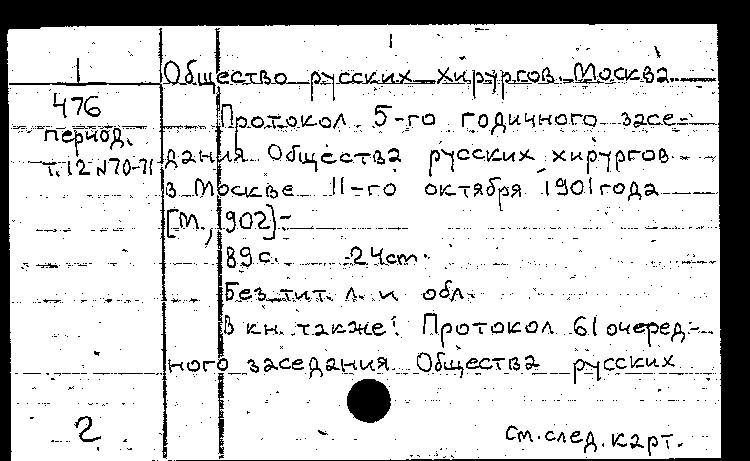 1
476
период.
т.12 №70-71
Общество русских хирургов. Москва
Протокол 5-го годичного засе-
дания Общества русских хирургов
в Москве 11-го октября 1901 года
[М., 902]-
89 с. 24 см.
Без тит. л. и обл.
В кн. также: Протокол 61 очеред-
ного заседания Общества русских
2
См. след. карт.